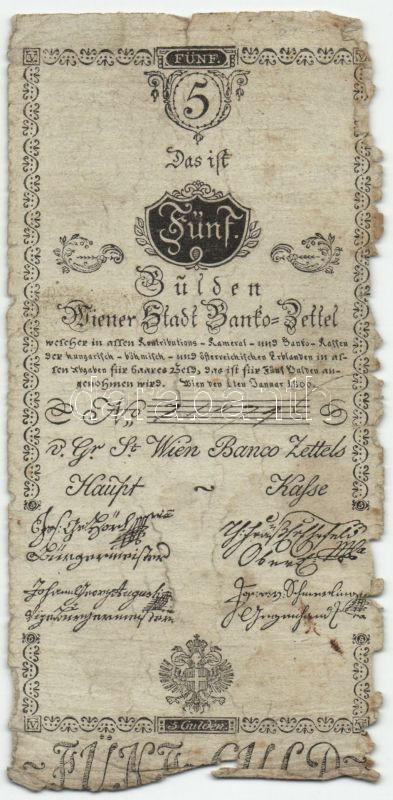 FÜNF.
5
Das ist
Fünf.
Gülden
Wiener Stadt Banko=Zettel
welcher in allen Kontributions - Kameral - und Banko - Kassen
der hungarisch - böhmisch - und österreichischen Erblanden in al-
len Abgaben für baares Geld, das ist für Fünf Gulden an-
genohmen wird. Wien den 1ten Januar 1800.
No
v. Gr St Wien Banco Zettels
Haupt ~ Kasse
Bürgermeister
Johann Georg Augusti
Vizebürgermeister
Gegenhand
V 5 Gulden V
FÜNF GULD